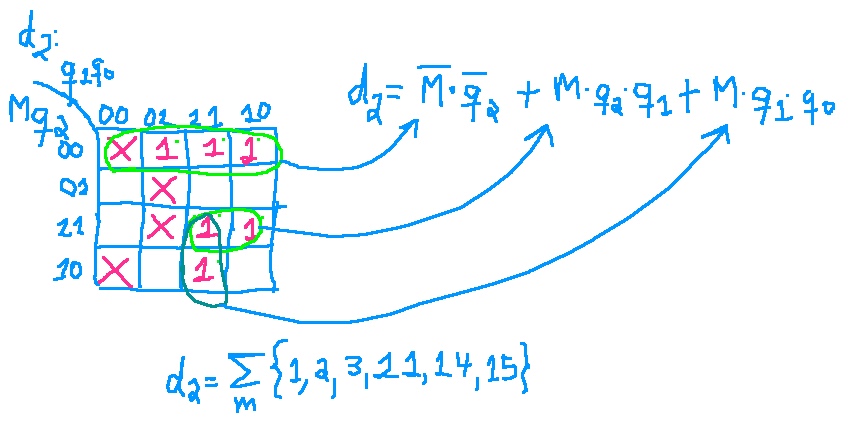 d₂:
q₁q₀
Mq₂
00 01 11 10
00 X 1 1 1
01 X
11 X 1 1
10 X 1
d₂ = M̅·q̅₂ + M·q₂·q₁ + M·q₁·q₀
d₂ = Σm {1, 2, 3, 11, 14, 15}